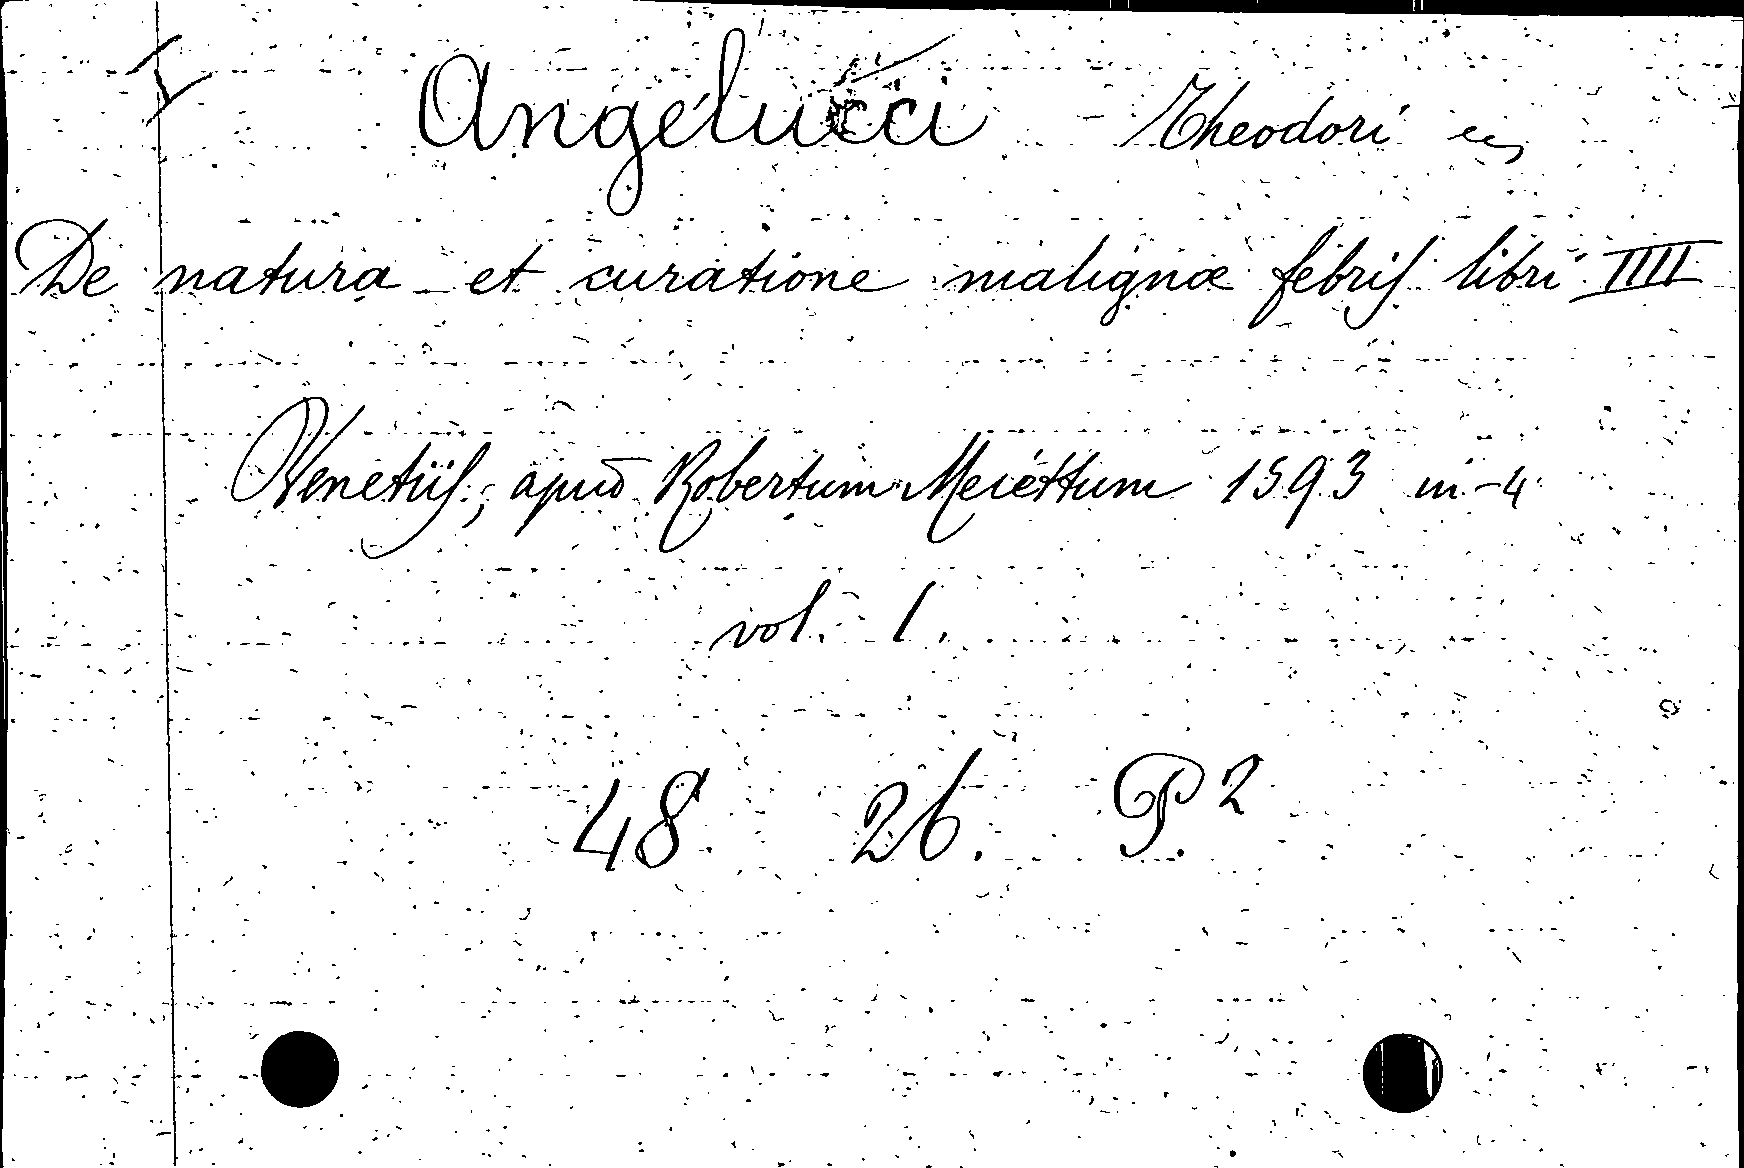 Angelucci Theodori
De natura et curatione malignæ febris libri IIII
Venetiis, apud Robertum Meiettum 1593 in-4
vol. 1.
48 26. P.2